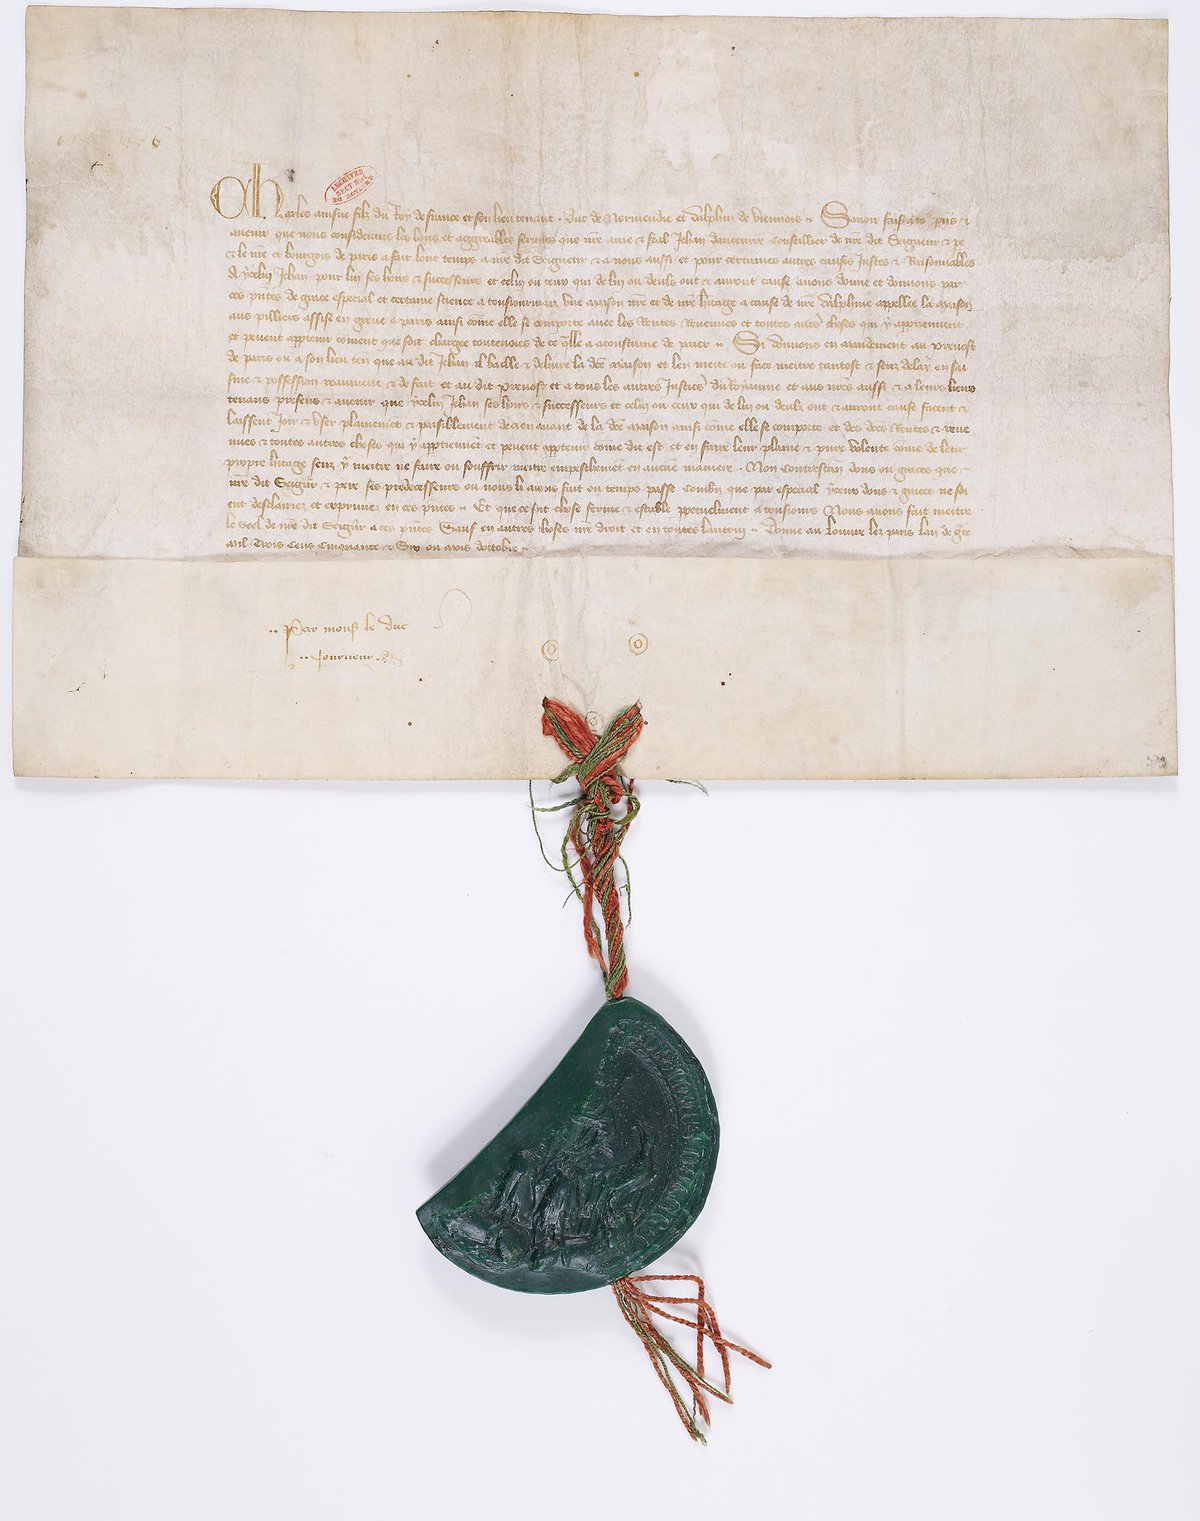 ARCHIVES
SECT HIST
DU ROYAUME
Charles ainsne filz du Roy de france et son lieutenant . Duc de Normendie et dalphin de viennois . Savoir faisons a touz presens et
avenir que nous considerans les bons et aggreables services que nre ame & feal Jehan dauceurre Conseillier de nre dit Seigneur & pe
& le nre et bourgois de paris a faiz lonc temps a nre dit Seigneur & a nous aussi et pour certaines autres causes Justes & Raisonnables
A ycelui Jehan pour lui ses hoirs & successeurs et celui ou ceux qui de lui ou deuls ont & auront cause avons donne et donnons par
ces pntes de grace especial et certaine science a tousjourmaiz une maison nre et de nre hitage a cause de nre dalphine appellee la maison
aus pilliers assise en greve a paris ainsi come elle se comporte avec les Rentes Revenues et toutes autres choses qui y apptiennent
et pevent apptenir coment que soit chargee toutevoies de ce quelle a acoustume de paier . Si donnons en mandement au prevost
de paris ou a son lieu ten que au dit Jehan il baille & delivre la dce maison et len mette ou face mettre tantost & senz delay en sai
sine & possession reaument & de fait et au dit prevost et a tous les autres Justices du Royaume et aus nres aussi & a leurs lieux
tenans presens & avenir que ycelui Jehan ses hoirs & successeurs et celui ou ceux qui de lui ou deulz ont & auront cause facent &
laissent Joir & User plainemet & paisiblement decien avant de la dce maison ainsi come elle se comporte et des dces Rentes & reve
nues & toutes autres choses qui y apptiennet et pevent apptenir come dit est et en faire leur plaine & pure volente come de leur
propre hitage senz y mettre ne faire ou souffrir mettre empeschement en aucune maniere . Non Contrestan dons ou graces que
nre dit Seigur & pere ses predecesseurs ou nous li avons fait ou temps passe Combn que par especial yceux dons & graces ne soi
ent desclairiez et exprimez en ces pntes . Et que ce soit chose ferme & estable ppetuelment a tousjours Nous avons fait mettre
le Seel de nre dit Seigur a ces pntes Sauf en autres choses nre droit et en toutes lautruy . Donne au louvre lez paris lan de gce
mil Trois Cens Cinquante & Six ou mois doctobre
Par monss le duc
329